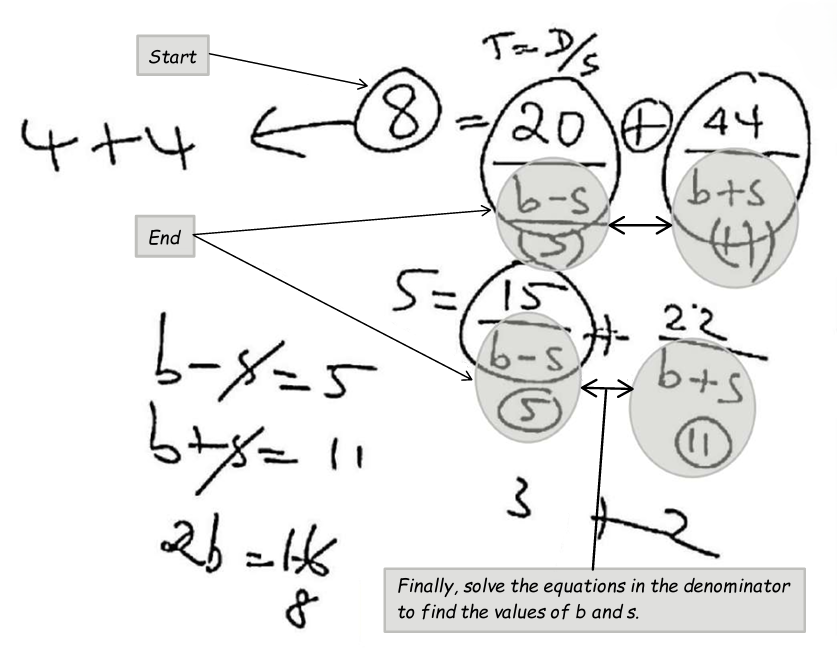 T = D/S
Start
4 + 4 ← 8 = 20/(b-s) + 44/(b+s)
(5) (11)
End
5 = 15/(b-s) + 22/(b+s)
(5) (11)
b - s = 5
b + s = 11
3 + 2
2b = 16
8
Finally, solve the equations in the denominator
to find the values of b and s.